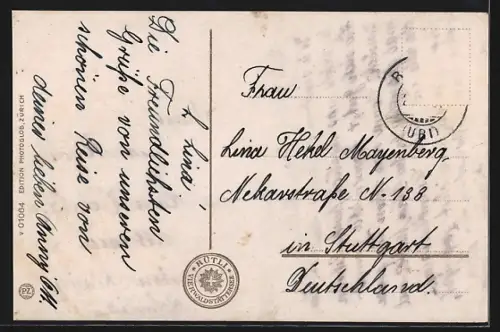 L Lina'
Die Freundlichsten
Grüße von unseren
schönen Reise von
deinen lieben Anny Ott
Frau
Lina Hehel Mayenberg.
Nekarstraße N-138
in Stuttgart
Deutschland.
(URI)
RÜTLI
VIERWALDSTÄTTERSEE
V 01064 EDITION PHOTOGLOB, ZÜRICH
PZ